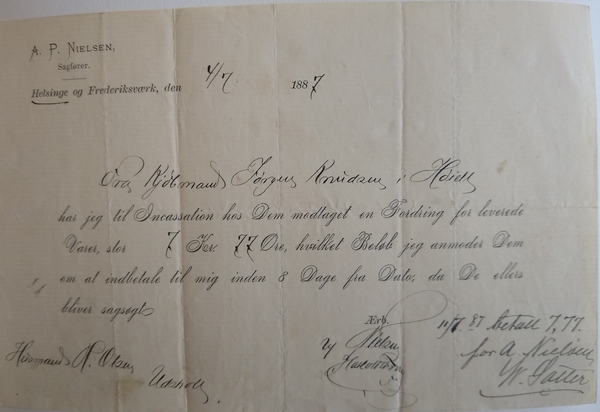 A. P. NIELSEN,
Sagfører.
Helsinge og Frederiksværk, den 4/7 1887
Fra Kjøbmand Jørgen Knudsen i Høielt
har jeg til Incassation hos Dem modtaget en Fordring for leverede
Varer, stor 7 Kr. 77 Øre, hvilket Beløb jeg anmoder Dem
om at indbetale til mig inden 8 Dage fra Dato, da De ellers
bliver sagsøgt
Ærb.
Nielsen
Husmand A. Olsen
Udsholt
10/7 87 betalt 7,77.
for A. Nielsen